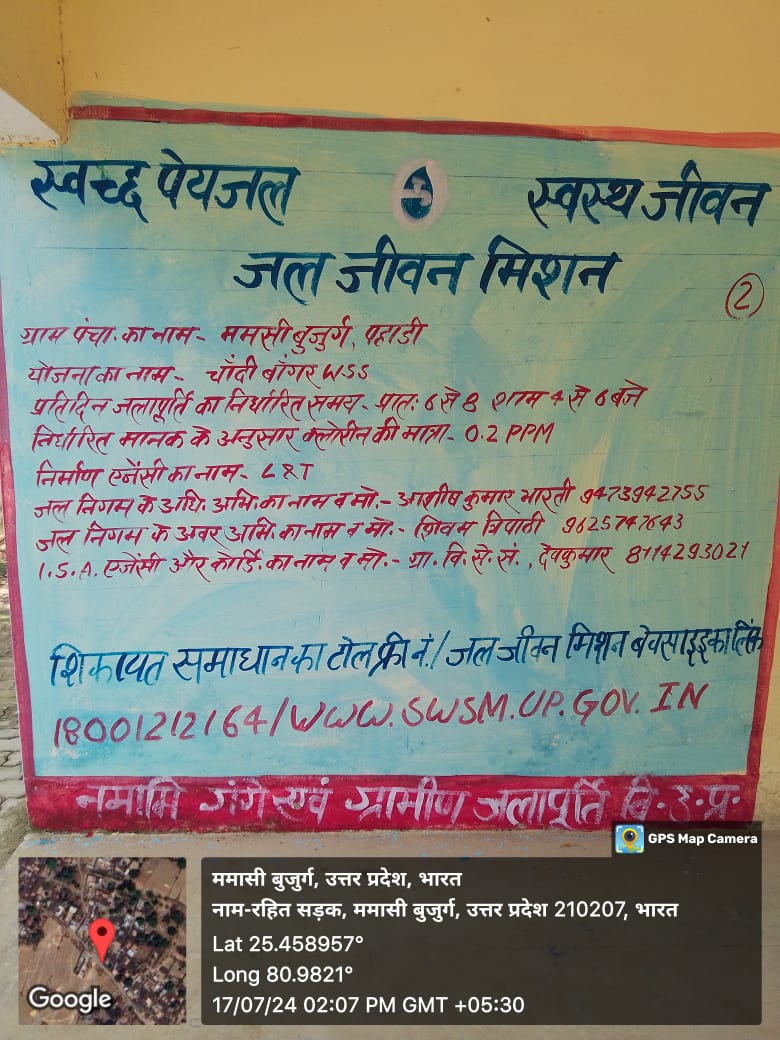 स्वच्छ पेयजल स्वस्थ जीवन
जल जीवन मिशन
2
ग्राम पंचा. का नाम - ममसी बुजुर्ग, पहाडी
योजना का नाम - चाँदी बाँगर WSS
प्रतिदिन जलापूर्ति का निर्धारित समय - प्रात: 6 से 8 शाम 4 से 6 बजे
निर्धारित मानक के अनुसार क्लोरीन की मात्रा - 0.2 PPM
निर्माण एजेंसी का नाम - L&T
जल निगम के अधि. अभि. का नाम व मो. - आशीष कुमार भारती 9473942755
जल निगम के अवर अभि. का नाम व मो. - शिवम त्रिपाठी 9625747643
I.S.A. एजेंसी और कोर्डि. का नाम व मो. - ग्रा. वि. से. सं., देवकुमार 8114293021
शिकायत समाधान का टोल फ्री नं./ जल जीवन मिशन बेवसाइइका लिंक
18001212164/WWW.SWSM.UP.GOV.IN
नमामि गंगे एवं ग्रामीण जलापूर्ति वि. उ. प्र.
GPS Map Camera
ममासी बुजुर्ग, उत्तर प्रदेश, भारत
नाम-रहित सड़क, ममासी बुजुर्ग, उत्तर प्रदेश 210207, भारत
Lat 25.458957°
Long 80.9821°
17/07/24 02:07 PM GMT +05:30
Google